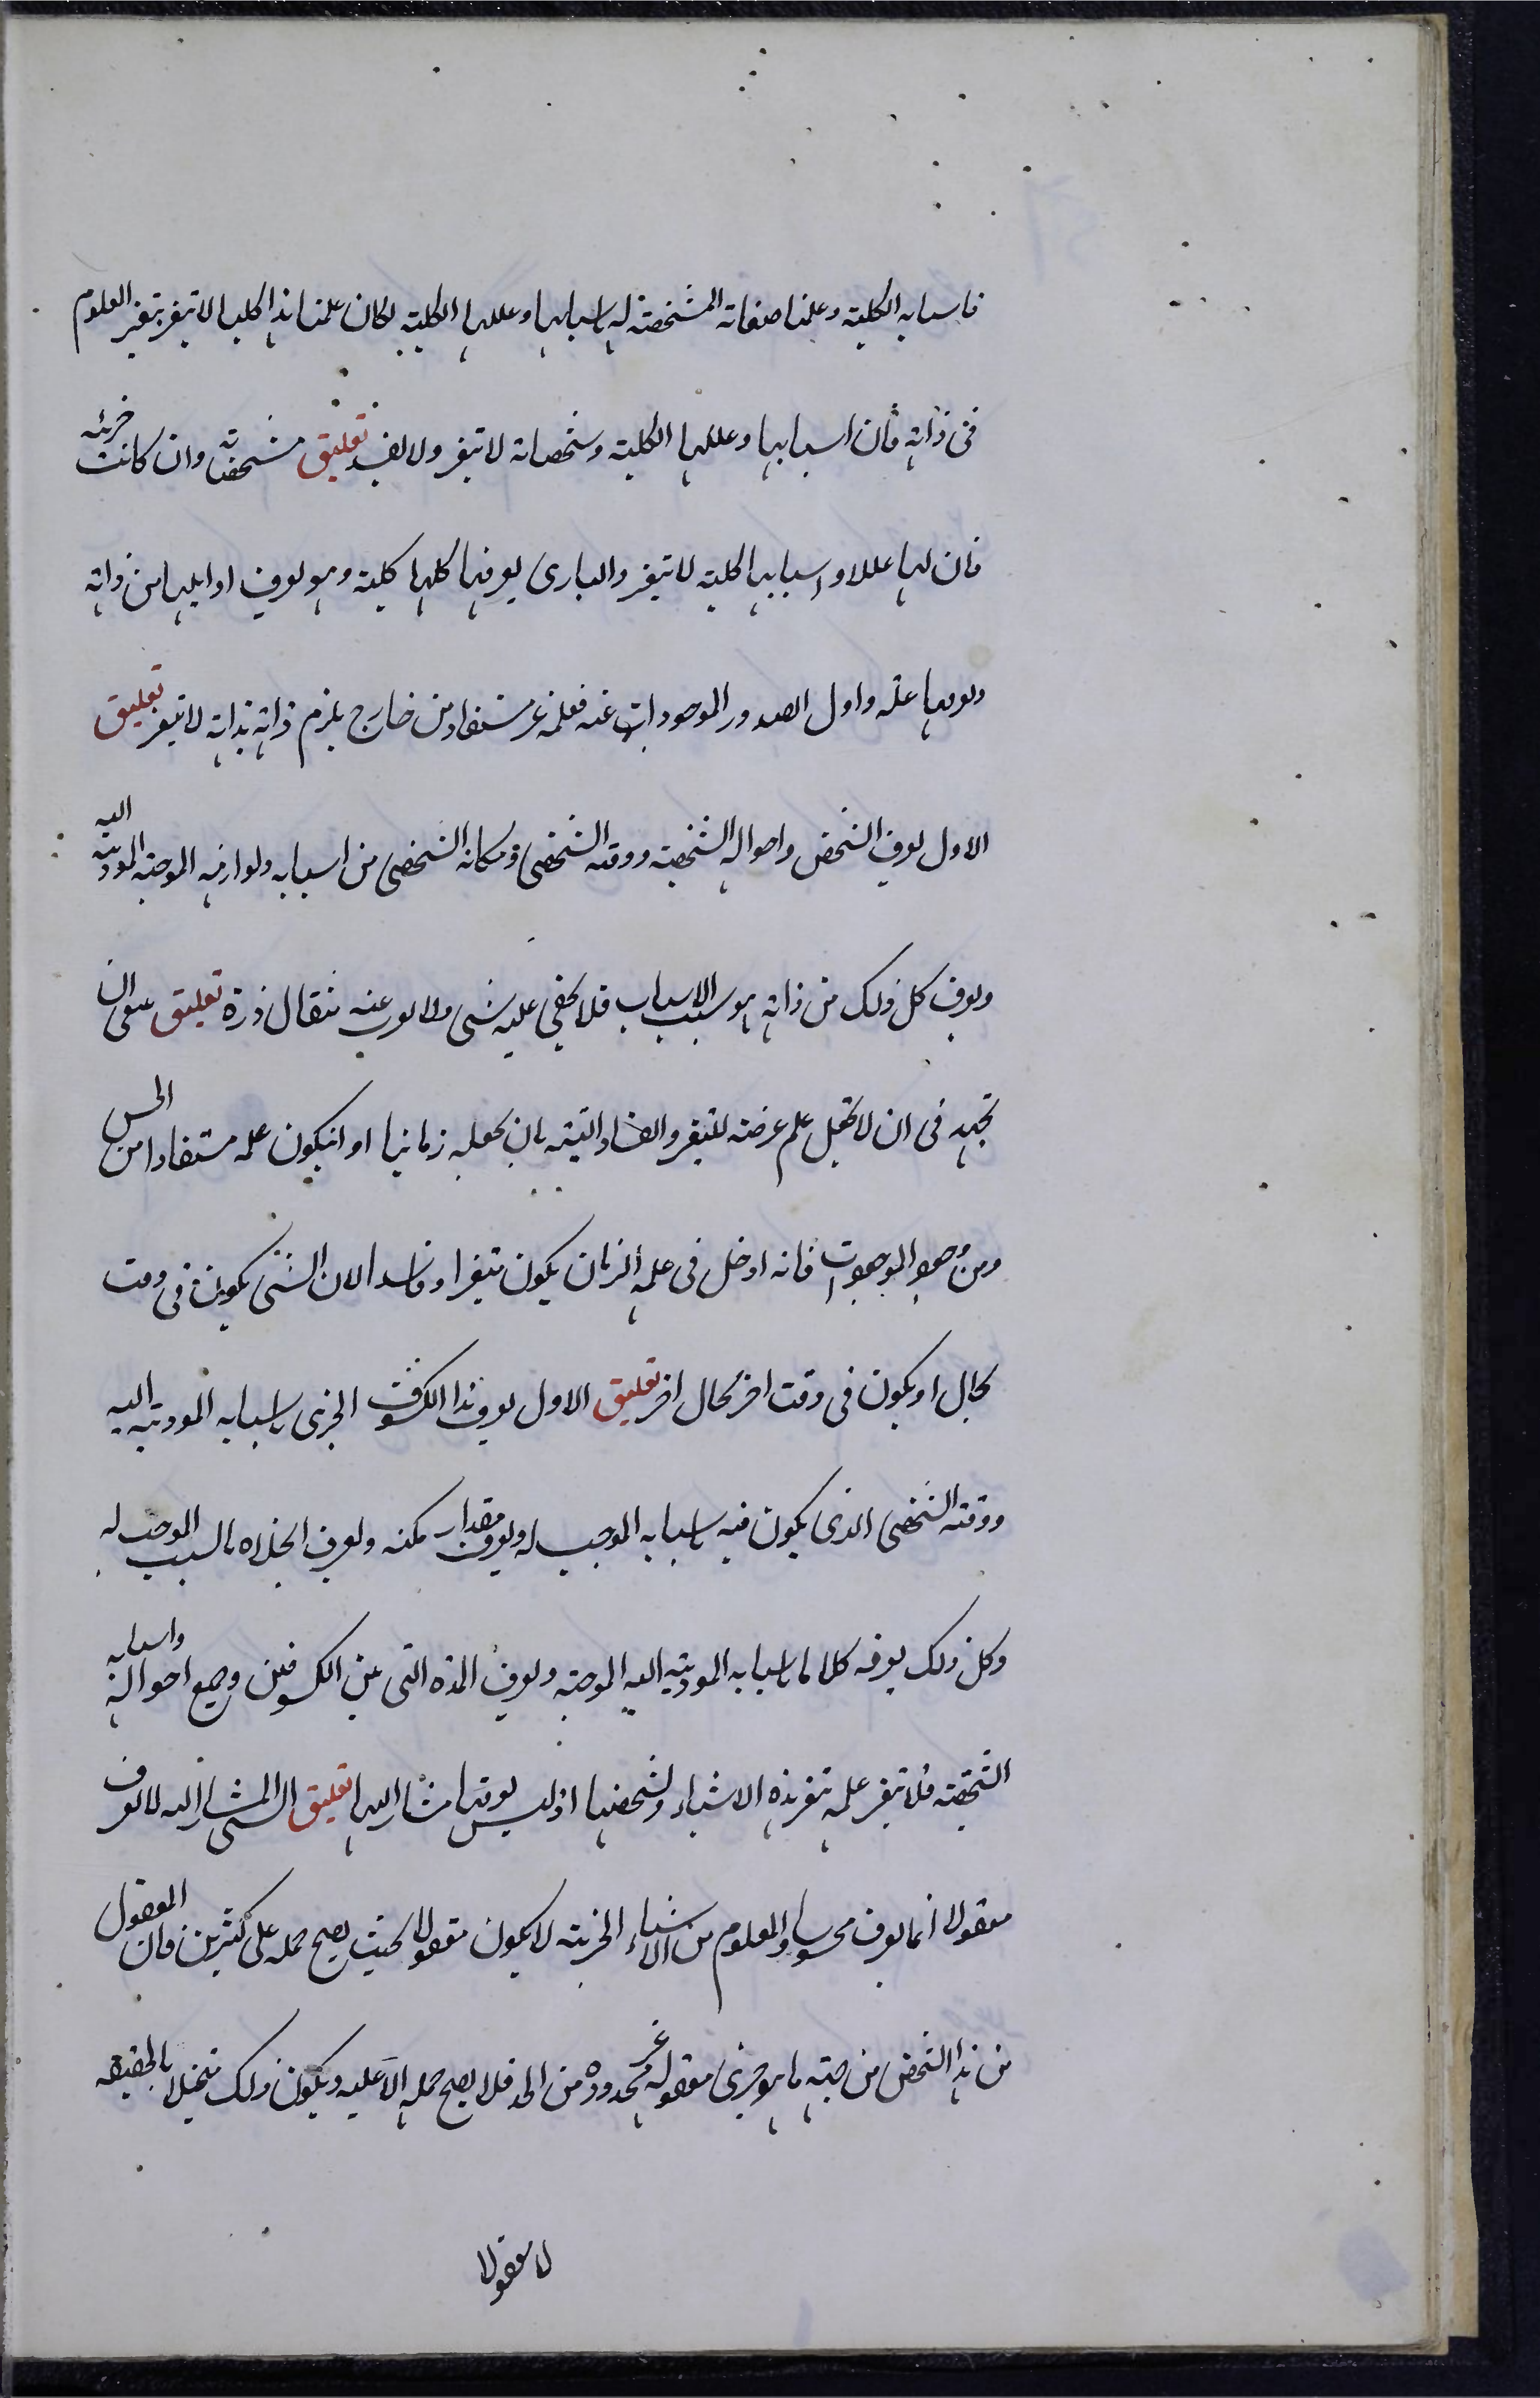 فاسبابه الكلية وعلمنا صفاته المشخصة له باسبابها وعللها الكلية لكان علمنا هذا كليا لا يتغير بتغير المعلوم
فى ذاته فان اسبابها وعللها الكلية ومشخصاته لا تتغير ولا تفسد تعليق مشخصاته وان كانت جزئية
فان لها عللا واسبابها كلية لا تتغير والبارى يعرفها كلها كلية وهو يعرف اوايلها من ذاته
ويعرفها علة واول الصدور الموجودات عنه فعلمه غير مستفاد من خارج يلزم ذاته بذاته لا تتغير تعليق
الاول يعرف الشخص واحواله الشخصية ووقته الشخصى ومكانه الشخصى من اسبابه ولوازمه الموجبة المودية اليه
ويعرف كل ذلك من ذاته هو سبب الاسباب فلا يخفى عليه شى ولا يعزب عنه مثقال ذرة تعليق ينبغى ان
تجتهد فى ان لا تجعل علمه عرضة للتغير والفساد البتة بان تجعله زمانيا او ان يكون علمه مستفادا من الحس
ومن وجود الموجودات فانه ادخل فى علمه الزمان يكون متغيرا وفاسدا لان الشى يكون فى وقت
بحال او يكون فى وقت اخر بحال اخر تعليق الاول يعرف هذا الكسوف الجزئى باسبابه المودية اليه
ووقته الشخصى الذى يكون فيه باسبابه الموجبة له ويعرف مقدار مكثه ويعرف انجلاءه بالسبب الموجب له
وكل ذلك يعرفه كليا باسبابه المودية اليه الموجبة ويعرف المدة التى بين الكسوفين وجميع احواله واسبابه
الشخصية فلا يتغير علمه بتغير هذه الاشياء وتشخصها اذ ليس يعرفها مشارا اليها تعليق الشى المشار اليه لا يعرف
معقولا انما يعرف محسوسا والمعلوم من الاشياء الجزئية لا يكون معقولا بحيث يصح حمله على كثيرين فان المعقول
من هذا الشخص من جهة ما هو جزئى معقوله غير محدوده من الحد فلا يصح حمله الا عليه ويكون ذلك متخيلا بالحقيقة
لا معقولا